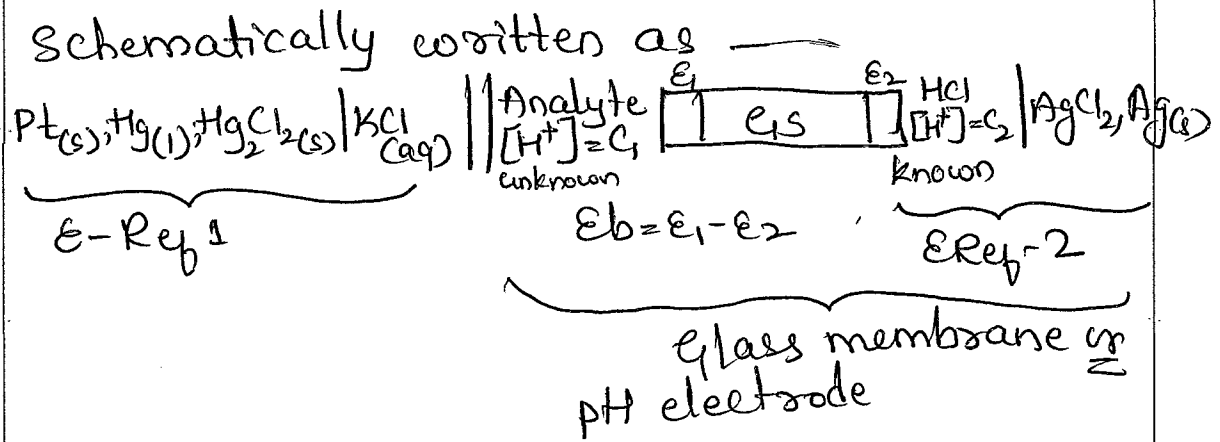 Schematically written as —
E1 E2
Pt(s), Hg(l), Hg2Cl2(s) | KCl (aq) || Analyte [H+]=C1 unknown | GS | HCl [H+]=C2 known | AgCl2, Ag(s)
E-Ref 1 Eb=E1-E2 ERef-2
Glass membrane or
pH electrode